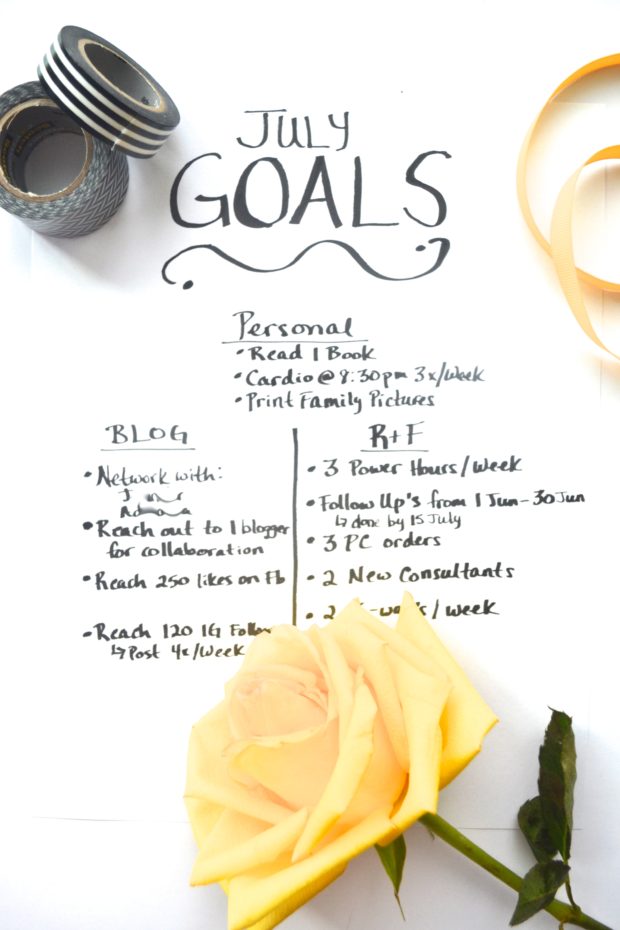 JULY
GOALS
Personal
• Read 1 Book
• Cardio @ 8:30pm 3x/week
• Print Family Pictures
BLOG
• Network with:
• Reach out to 1 blogger
for collaboration
• Reach 250 likes on Fb
• Reach 120 IG
↳ Post 4x/week
R+F
• 3 Power Hours/week
• Follow Up's from 1 Jun-30Jun
↳ done by 15 July
• 3 PC orders
• 2 New Consultants
• 2 /week